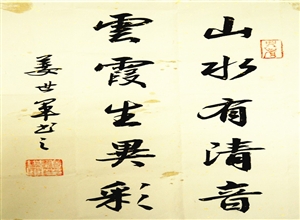 山水有清音
雲霞生異彩
姜世軍书之